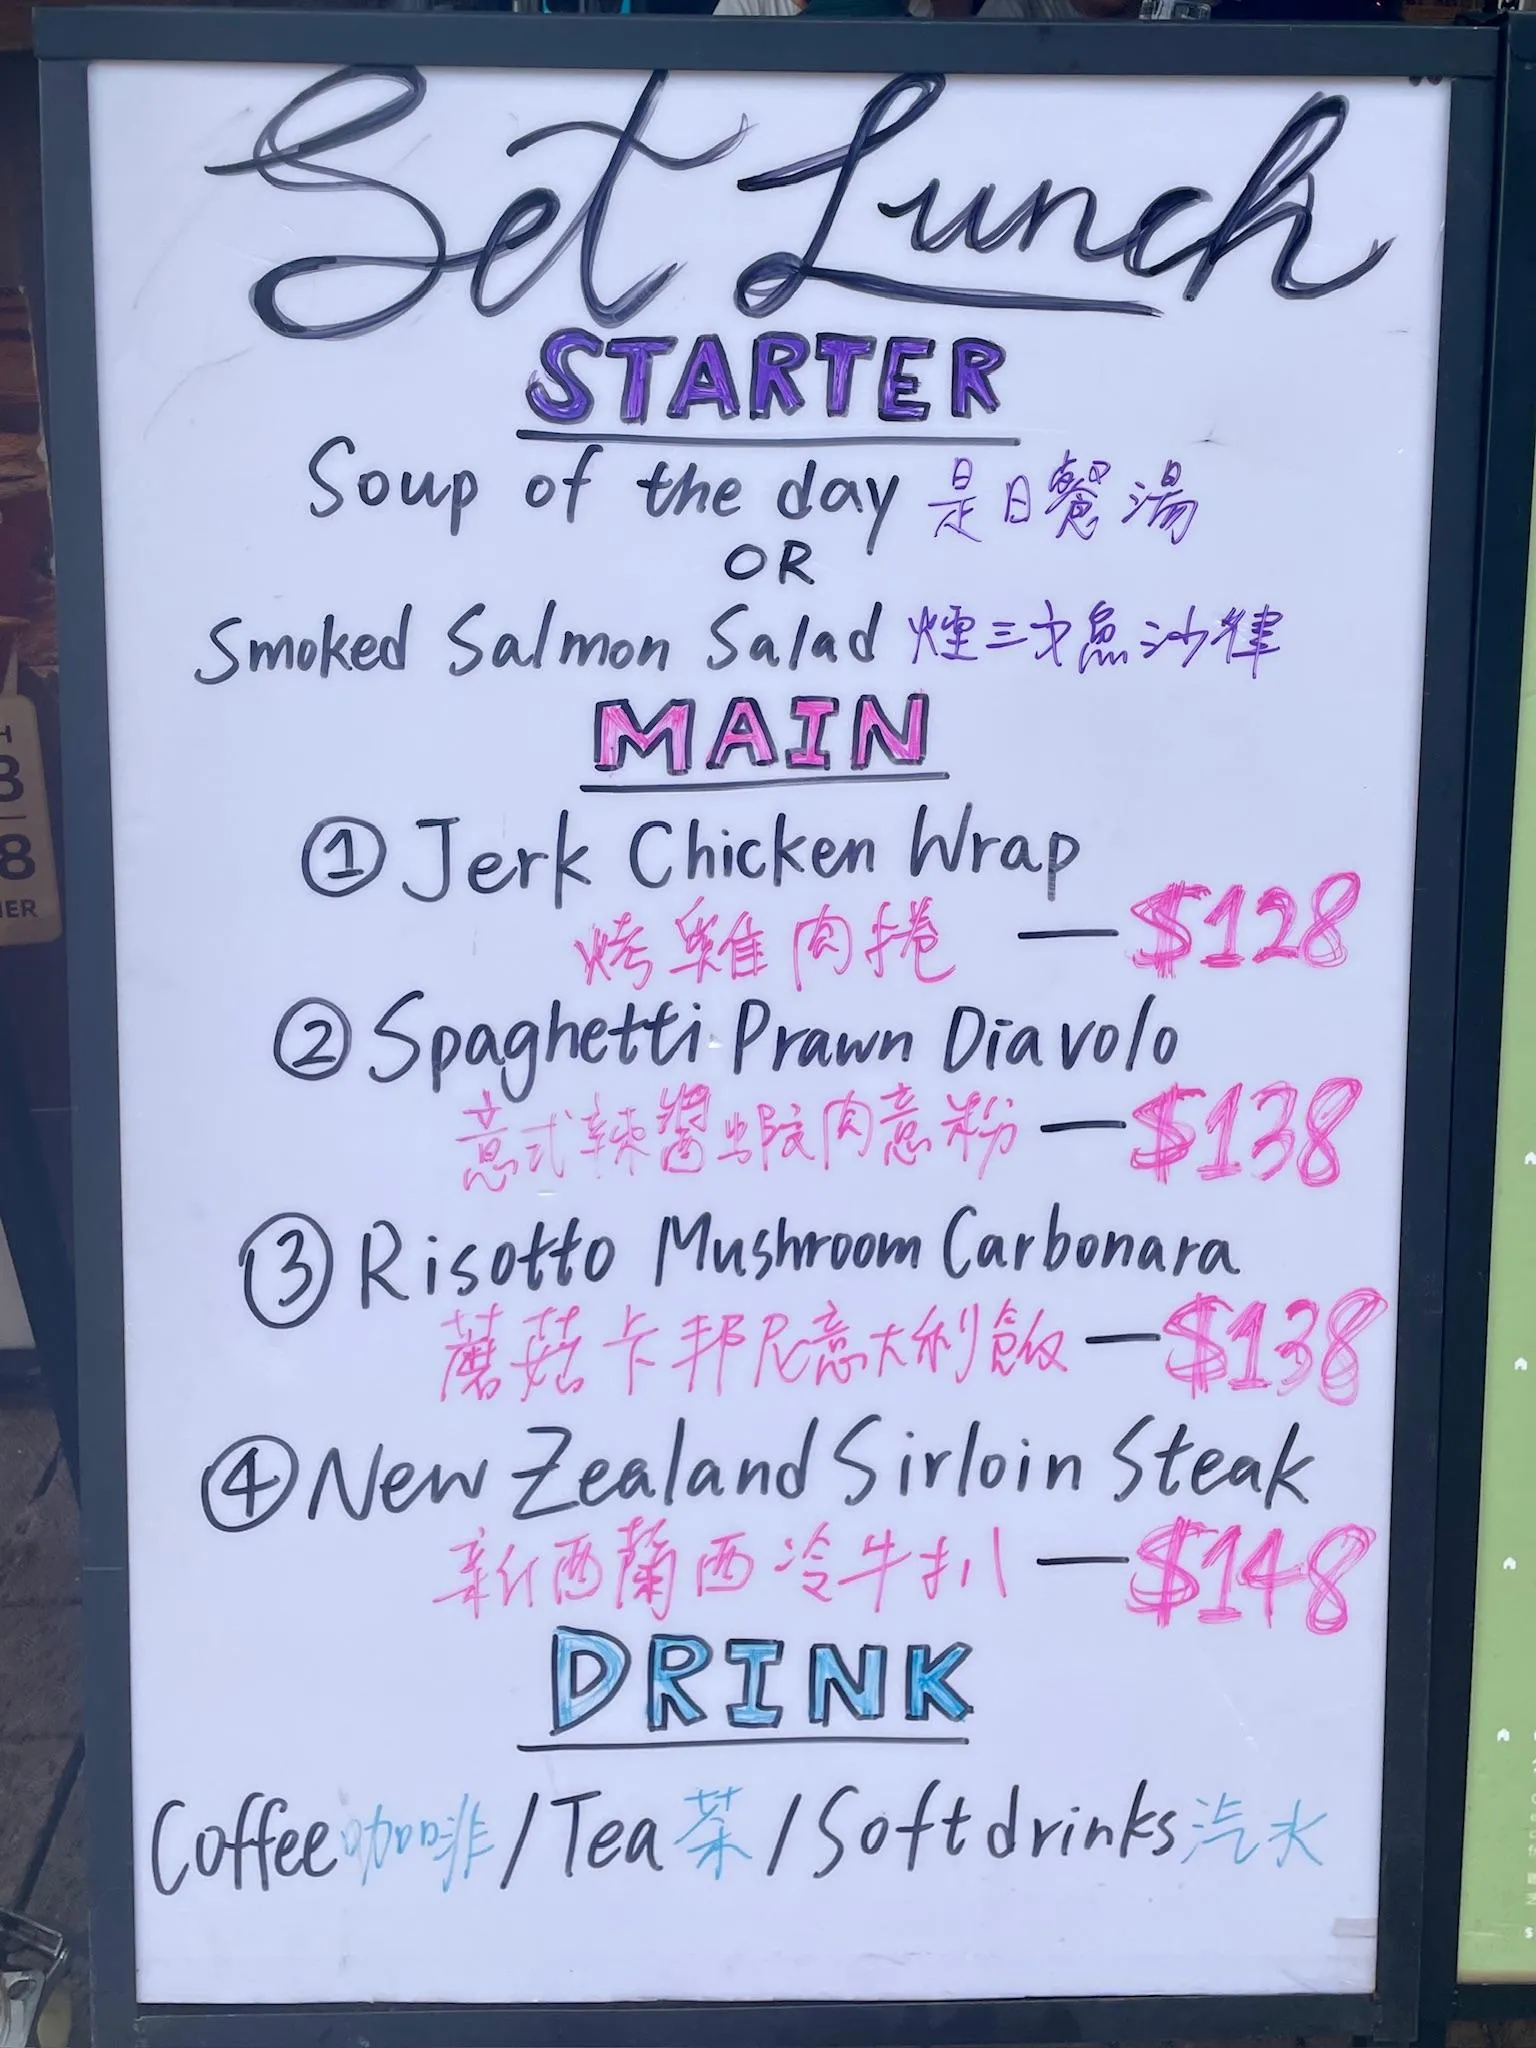 Set Lunch
STARTER
Soup of the day 是日餐湯
OR
Smoked Salmon Salad 煙三文魚沙律
MAIN
① Jerk Chicken Wrap
烤雞肉捲 — $128
② Spaghetti Prawn Diavolo
意式辣醬蝦肉意粉 — $138
③ Risotto Mushroom Carbonara
蘑菇卡邦尼意大利飯 — $138
④ New Zealand Sirloin Steak
新西蘭西冷牛扒 — $148
DRINK
Coffee咖啡/Tea茶/Soft drinks汽水